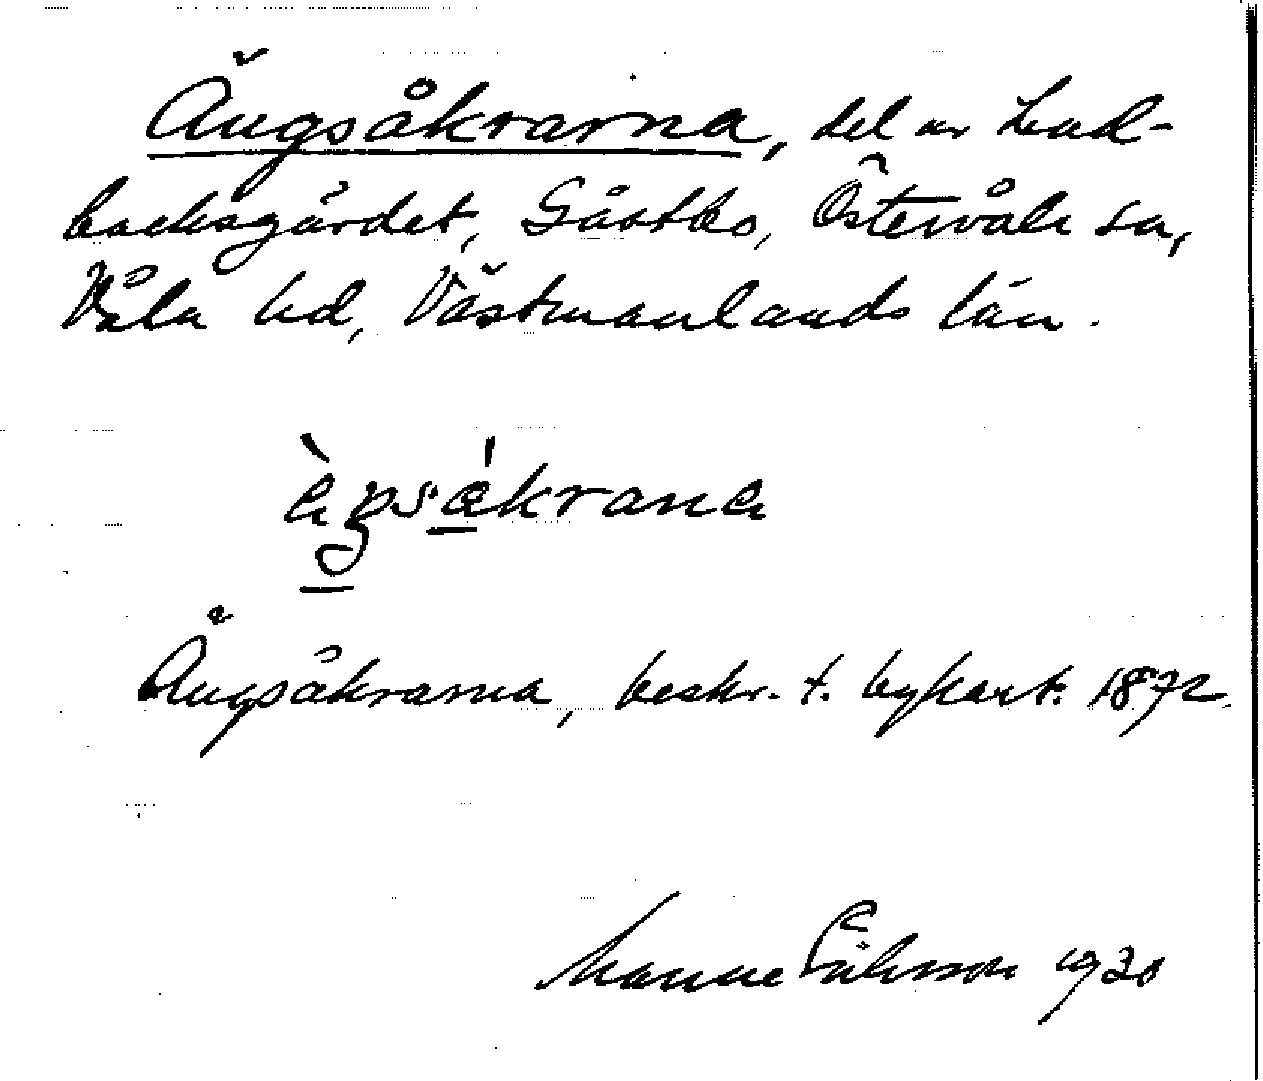 Ängsåkrarna, del av Lad-
backsgärdet, Gåstbo, Östervåla sn,
Våla hd, Västmanlands län.
Ängsåkrarna, beskr. t. bykart. 1872.
Manne Eriksson 1930